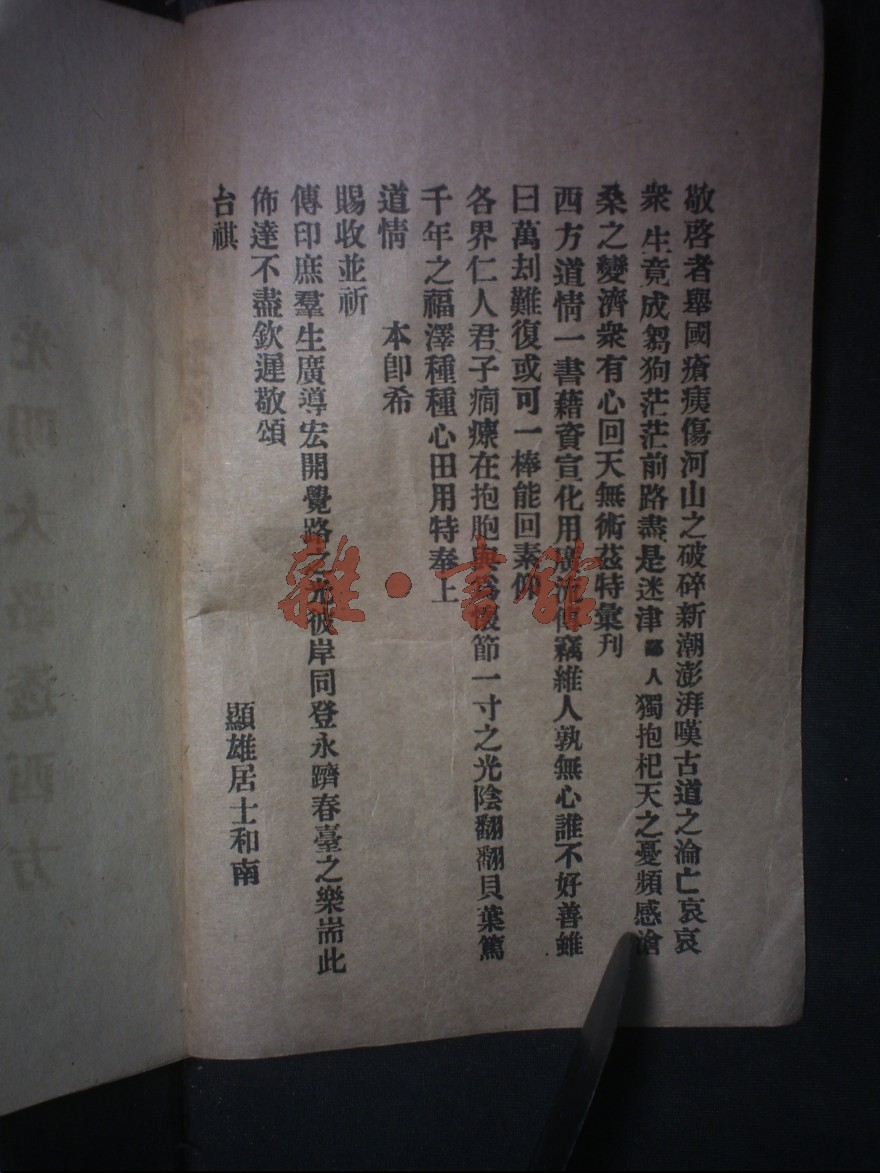 敬啓者舉國瘡痍傷河山之破碎新潮澎湃嘆古道之淪亡哀哀
衆生竟成芻狗茫茫前路盡是迷津鄙人獨抱杞天之憂頻感滄
桑之變濟衆有心回天無術茲特彙刊
西方道情一書藉資宣化用廣流傳竊維人孰無心誰不好善雖
曰萬刦難復或可一棒能回素仰
各界仁人君子痌瘝在抱胞與爲懷節一寸之光陰翻翻貝葉篤
千年之福澤種種心田用特奉上
道情 本卽希
賜收並祈
傳印庶羣生廣導宏開覺路之光彼岸同登永躋春臺之樂耑此
佈達不盡欽遲敬頌
台祺
顯雄居士和南
雜·書館
光明大路透西方